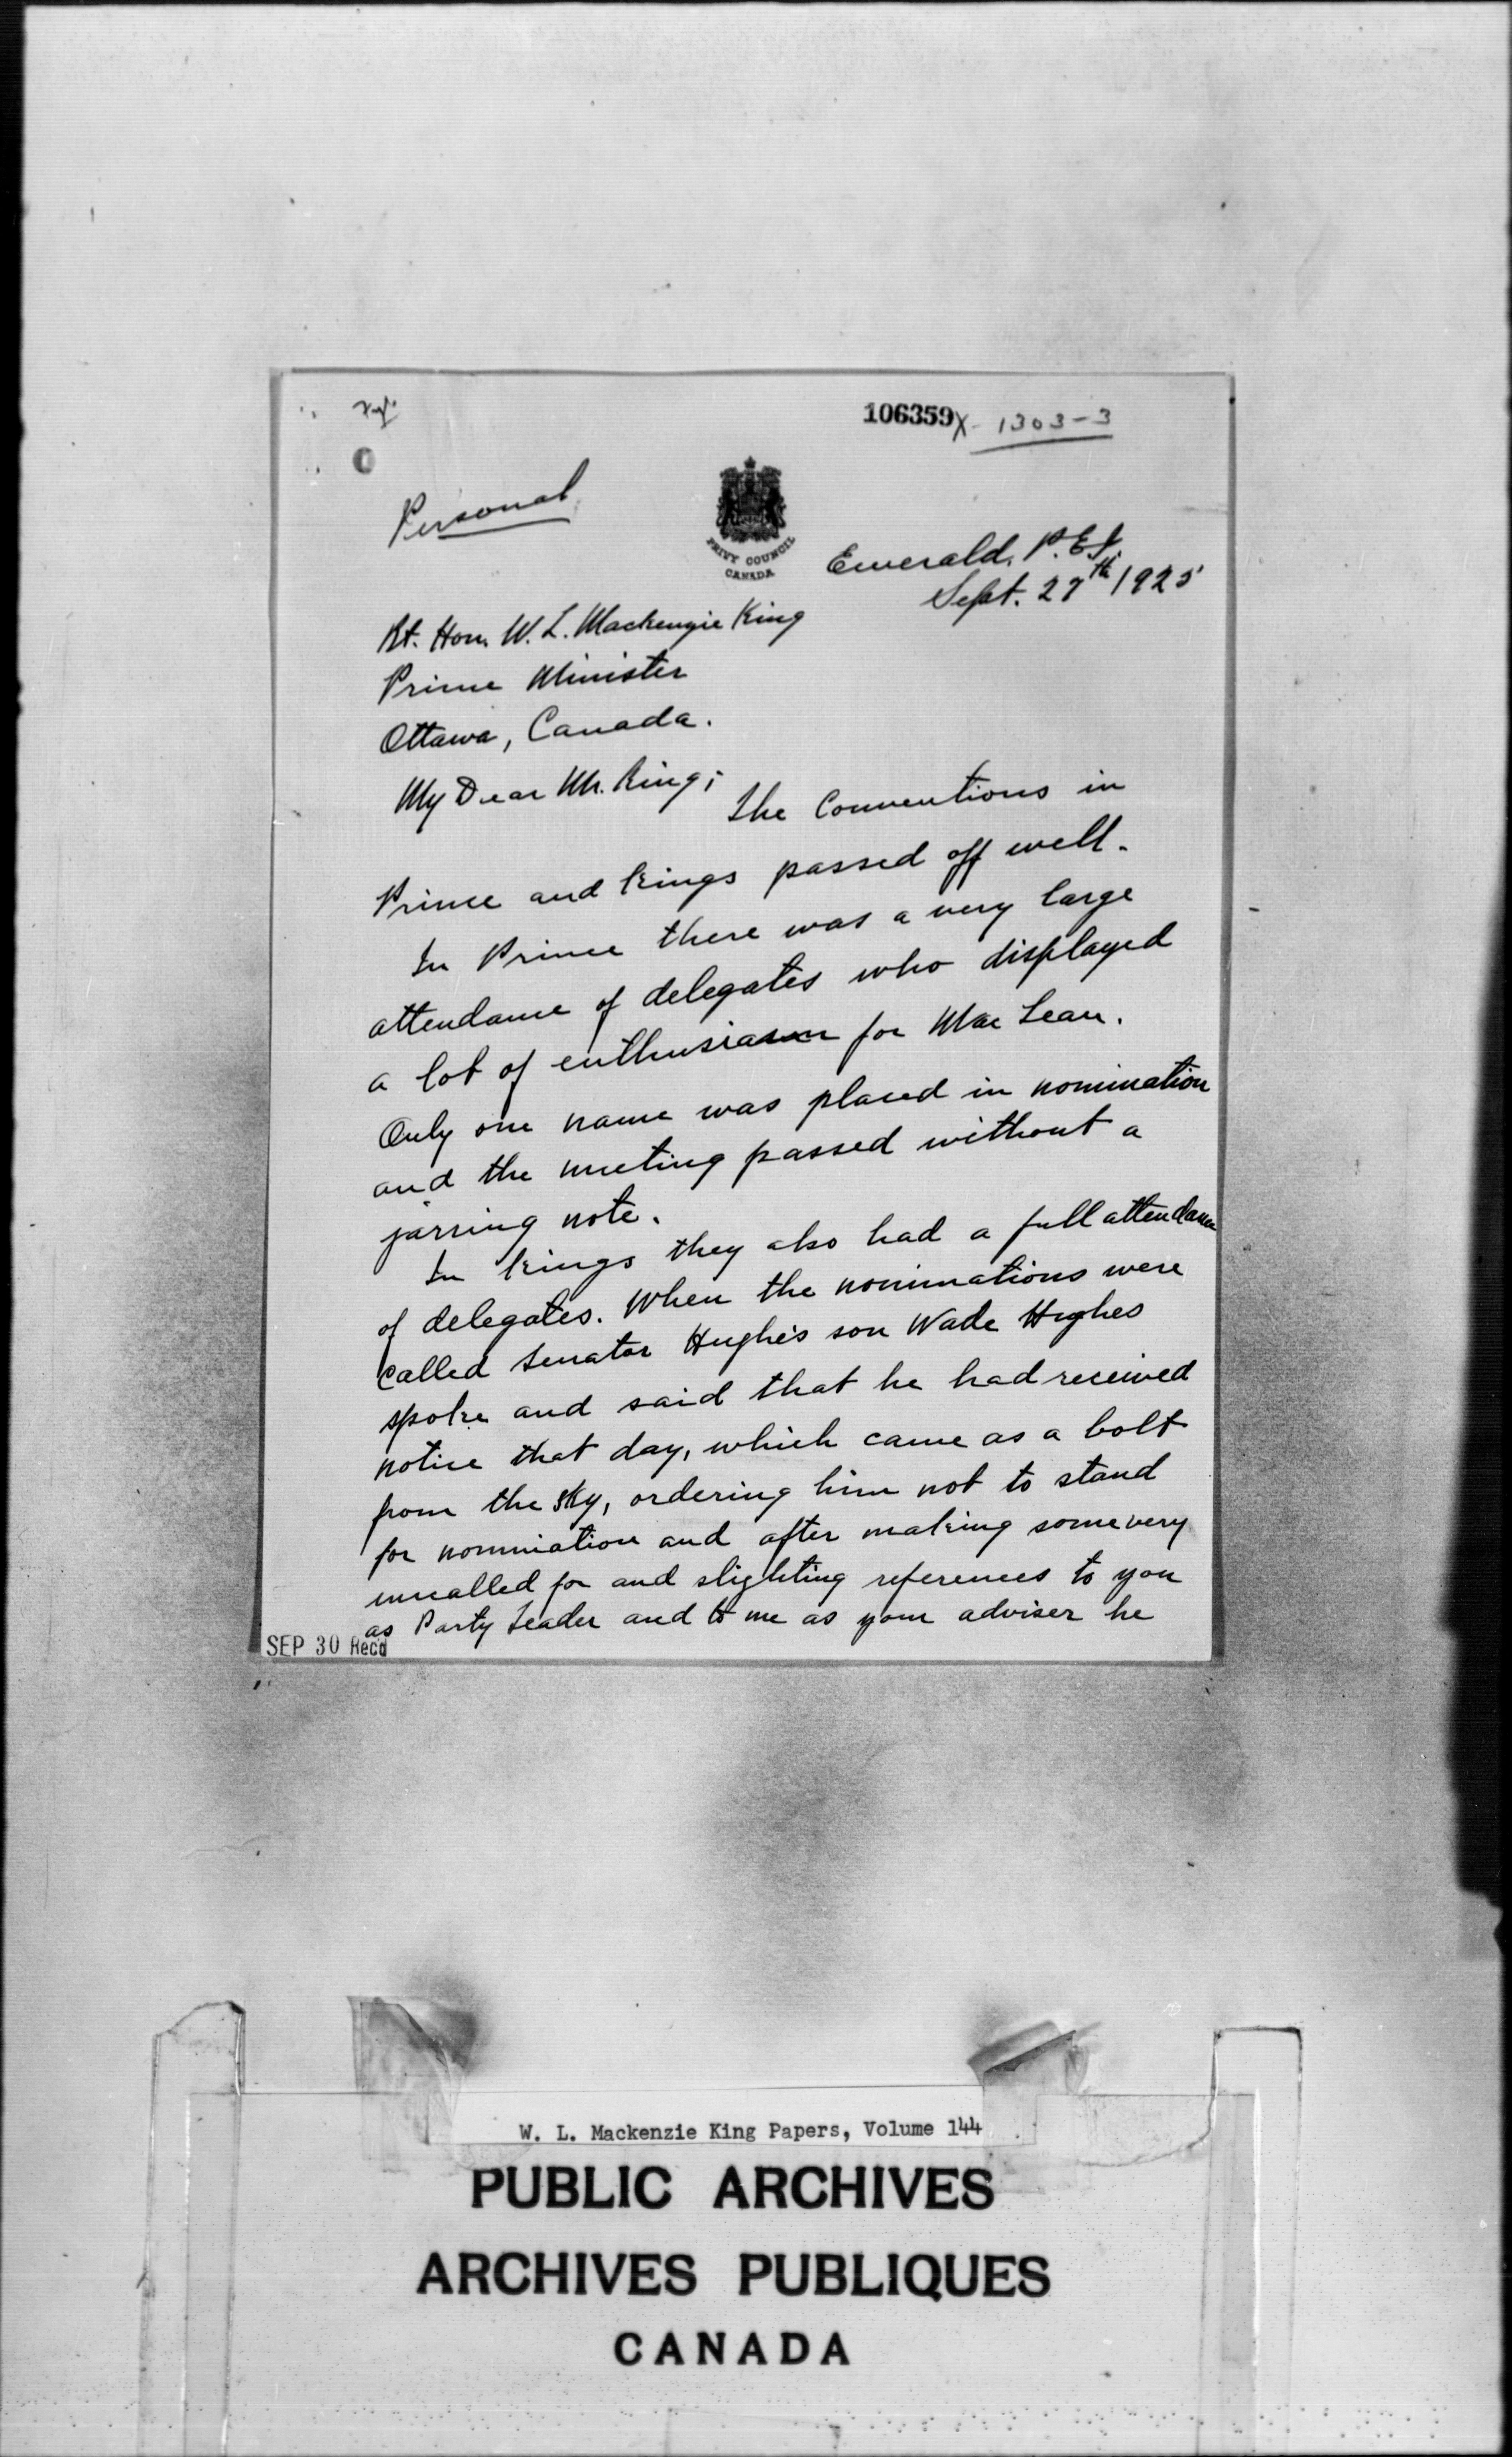 106359 X- 1303-3
Personal
PRIVY COUNCIL
CANADA
Emerald, P.E.I.
Sept. 27th 1925
Rt. Hon. W. L. Mackenzie King
Prime Minister
Ottawa, Canada.
My Dear Mr. King;
The Conventions in
Prince and Kings passed off well.
In Prince there was a very large
attendance of delegates who displayed
a lot of enthusiasm for MacLean.
Only one name was placed in nomination
and the meeting passed without a
jarring note.
In Kings they also had a full attendance
of delegates. When the nominations were
called Senator Hughes son Wade Hughes
spoke and said that he had received
notice that day, which came as a bolt
from the sky, ordering him not to stand
for nomination and after making some very
uncalled for and slighting references to you
as Party Leader and to me as your adviser he
SEP 30 Rec'd
W. L. Mackenzie King Papers, Volume 144
PUBLIC ARCHIVES
ARCHIVES PUBLIQUES
CANADA